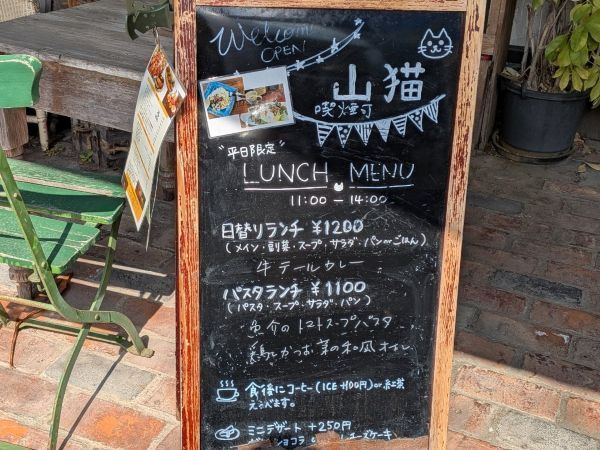 Welcome
OPEN
山猫
喫煙可
"平日限定"
LUNCH MENU
11:00 - 14:00
日替りランチ ¥1200
(メイン・副菜・スープ・サラダ・パンorごはん)
牛テールカレー
パスタランチ ¥1100
(パスタ・スープ・サラダ・パン)
魚介のトマトスープパスタ
鶏とかつお菜の和風オイル
食後にコーヒー(ICE+100円)or紅茶
えらびます。
ミニデザート +250円
ガトーショコラ チーズケーキ